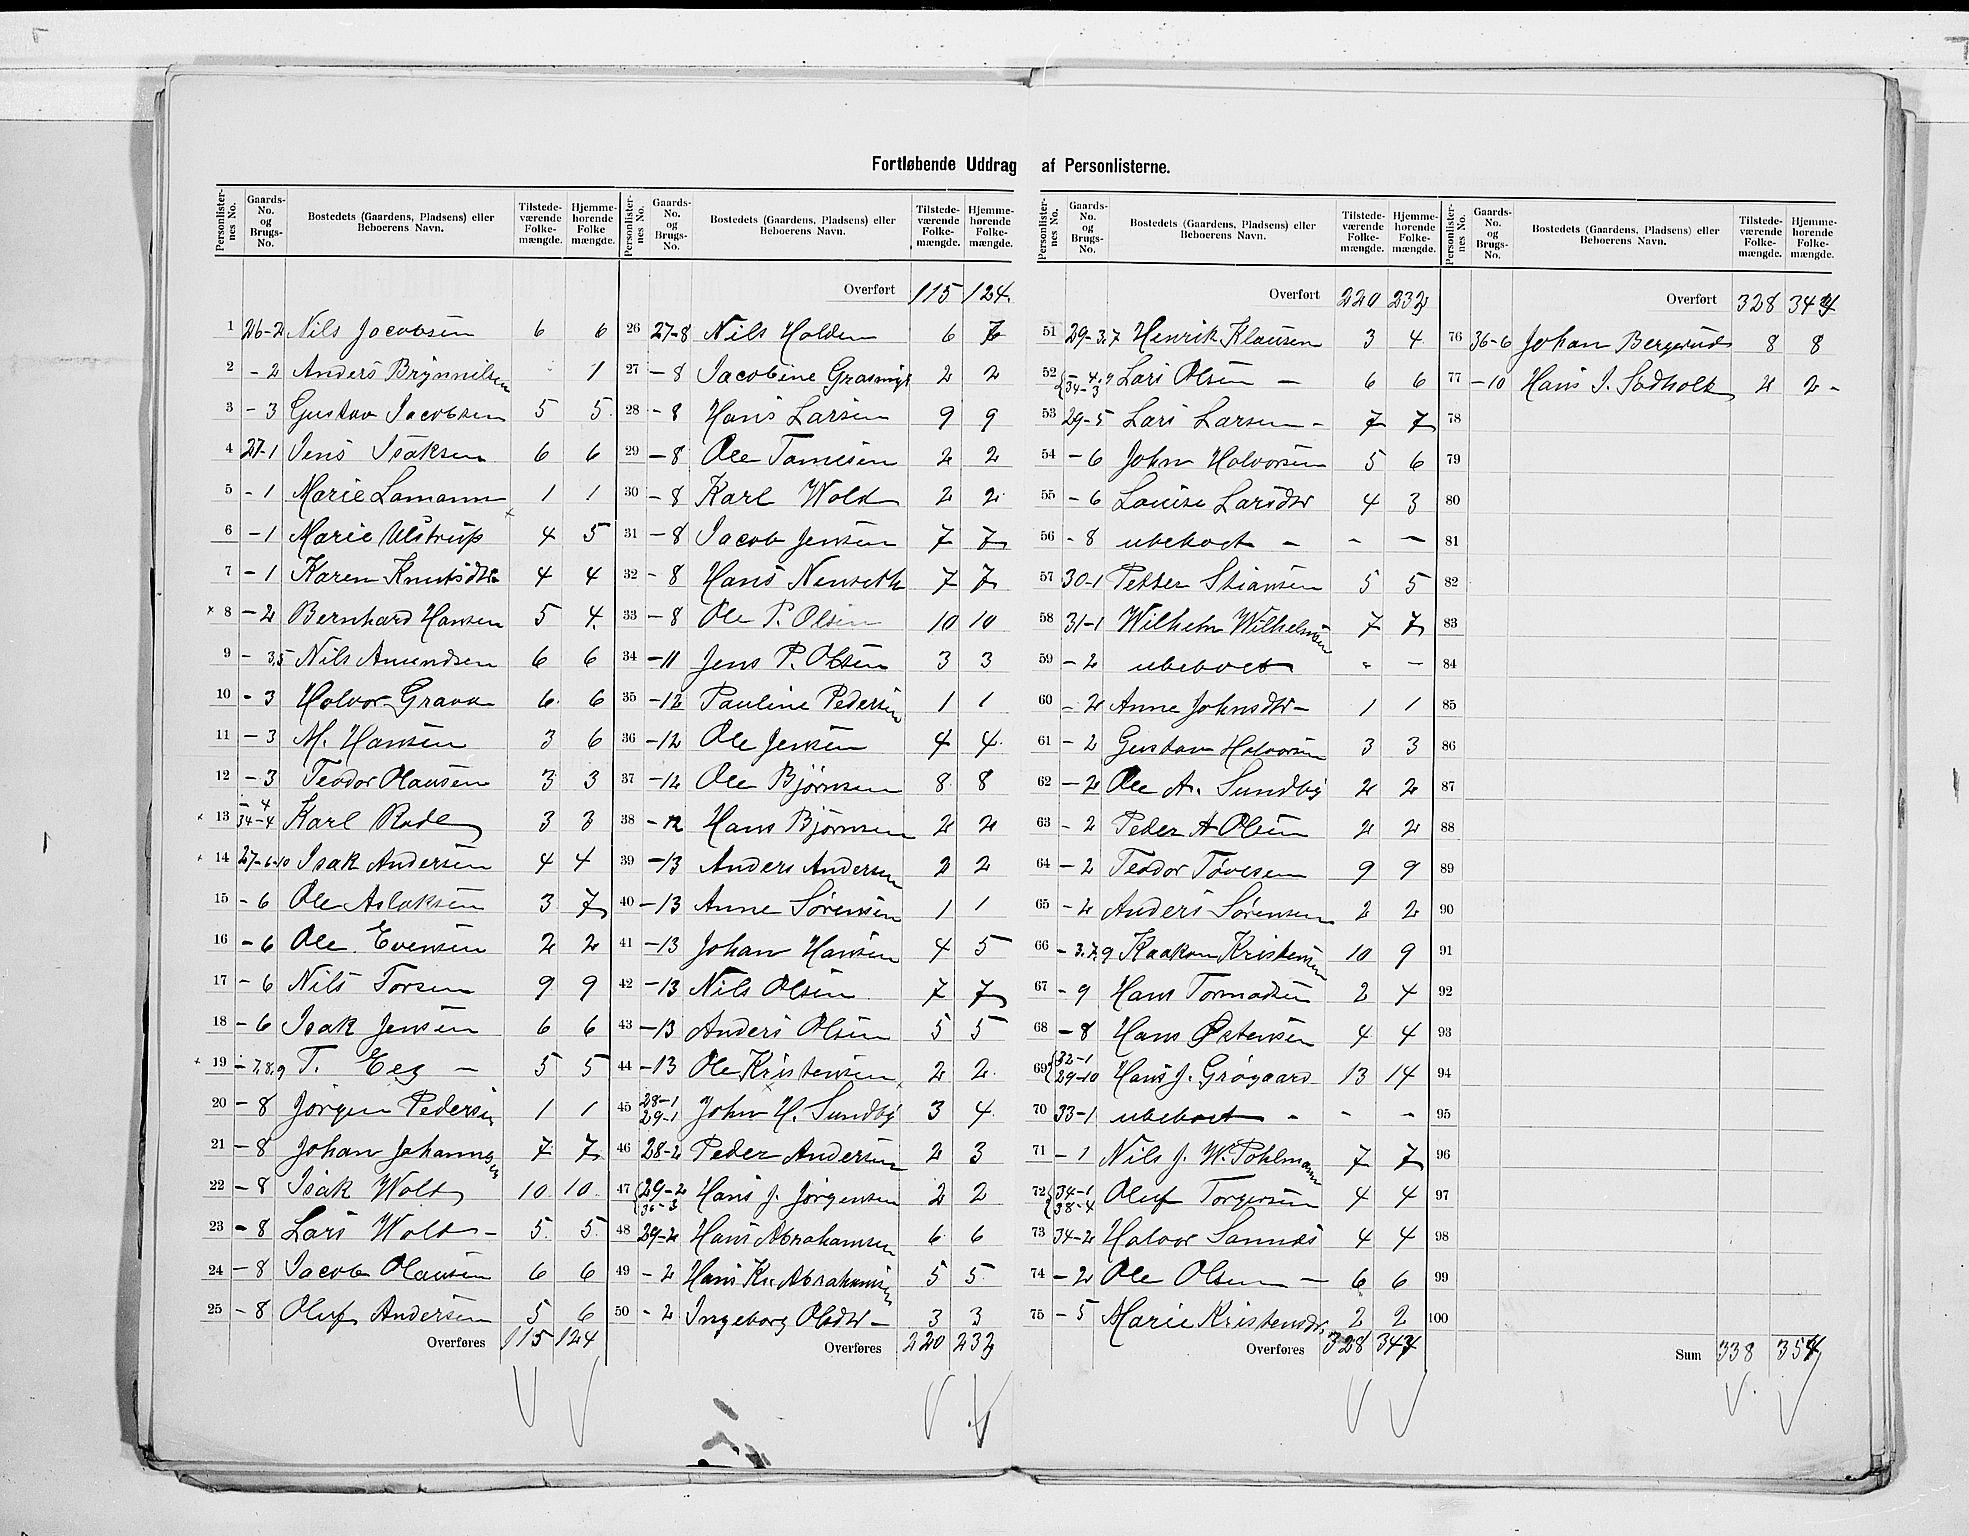 Fortløbende Uddrag af Personlisterne.
Personlisternes No. Gaards-No. og Brugs-No. Bostedets (Gaardens, Pladsens) eller Beboerens Navn. Tilstedeværende Folkemængde. Hjemmehørende Folkemængde.
1 26-2 Nils Jacobsen 6 6
2 -2 Anders Brynnilsen - 1
3 -3 Gustav Jacobsen 5 5
4 27-1 Jens Isaksen 6 6
5 -1 Marie Lamann 1 1
6 -1 Marie Ulstrup 4 5
7 -1 Karen Knutsdtr 4 4
× 8 -2 Bernhard Hansen 5 4
9 -3,5 Nils Amundsen 6 6
10 -3 Halvor Grava 6 6
11 -3 M. Hansen 3 6
12 -3 Teodor Olausen 3 3
× 13 -4 34-4 Karl Rode 3 3
× 14 27-6-10 Isak Andersen 4 4
15 -6 Ole Aslaksen 3 7
16 -6 Ole Evensen 2 2
17 -6 Nils Torsen 9 9
18 -6 Isak Jensen 6 6
× 19 -7,8,9 T. Eeg - 5 5
20 -8 Jörgen Pedersen 1 1
21 -8 Johan Johannesen 7 7
22 -8 Isak Wold 10 10
23 -8 Lars Wold - 5 5
24 -8 Jacob Olausen 6 6
25 -8 Oluf Andersen 5 6
Overføres 115 124
Personlisternes No. Gaards-No. og Brugs-No. Bostedets (Gaardens, Pladsens) eller Beboerens Navn. Tilstedeværende Folkemængde. Hjemmehørende Folkemængde.
Overført 115 124
26 27-8 Nils Holden 6 7
27 -8 Jacobine 2 2
28 -8 Hans Larsen 9 9
29 -8 Ole Tamesen 2 2
30 -8 Karl Wold 2 2
31 -8 Jacob Jensen 7 7
32 -8 Hans 7 7
33 -8 Ole P. Olsen 10 10
34 -11 Jens P. Olsen 3 3
35 -12 Pauline Pedersen 1 1
36 -12 Ole Jensen 4 4
37 -12 Ole Bjørnsen 8 8
38 -12 Hans Bjørnsen 2 2
39 -13 Anders Andersen 2 2
40 -13 Anne Sørensen 1 1
41 -13 Johan Hansen 4 5
42 -13 Nils Olsen 7 7
43 -13 Anders Olsen 5 5
44 -13 Ole Kristensen 2 2
45 28-1 29-1 John H. Sundby 3 4
46 28-2 Peder Andersen 2 3
47 29-2 36-3 Hans J. Jörgensen 2 2
48 29-2 Hans Abrahamsen 6 6
49 -2 Hans Kr. Abrahamsen 5 5
50 -2 Ingeborg Olsdtr - 3 3
Overføres 220 232
Personlisternes No. Gaards-No. og Brugs-No. Bostedets (Gaardens, Pladsens) eller Beboerens Navn. Tilstedeværende Folkemængde. Hjemmehørende Folkemængde.
Overført 220 232
51 29-3,7 Henrik Klausen 3 4
52 -4,9 34-3 Lars Olsen - 6 6
53 29-5 Lars Larsen - 7 7
54 -6 John Halvorsen 5 6
55 -6 Louise Larsdtr 4 3
56 -8 ubeboet - - -
57 30-1 Petter Stiansen 5 5
58 31-1 Wilhelm Wilhelmsen 7 7
59 -2 ubeboet - -
60 -2 Anne Johnsdtr - 1 1
61 -2 Gustav Halvorsen 3 3
62 -2 Ole A. Sundby 2 2
63 -2 Peder A Olsen 2 2
64 -2 Teodor Tovesen 9 9
65 -2 Anders Sörensen 2 2
66 -3,7,9 Haakon Kristensen 10 9
67 -9 Hans Tormodsen 2 4
68 -8 Hans Østensen 4 4
69 32-1 29-10 Hans J. Grögaard 13 14
70 33-1 ubeboet - - -
71 -1 Nils J. W. Pohlmann 7 7
72 34-1 38-4 Oluf Torgersen 4 4
73 34-2 Halvor Sannes 4 4
74 -2 Ole Olsen - 6 6
75 -5 Marie Kristensdtr. 2 2
Overføres 328 344
Personlisternes No. Gaards-No. og Brugs-No. Bostedets (Gaardens, Pladsens) eller Beboerens Navn. Tilstedeværende Folkemængde. Hjemmehørende Folkemængde.
Overført 328 344
76 36-6 Johan Bergerud 8 8
77 -10 Hans J. 2 2 -
78
79
80
81
82
83
84
85
86
87
88
89
90
91
92
93
94
95
96
97
98
99
100
Sum 338 354